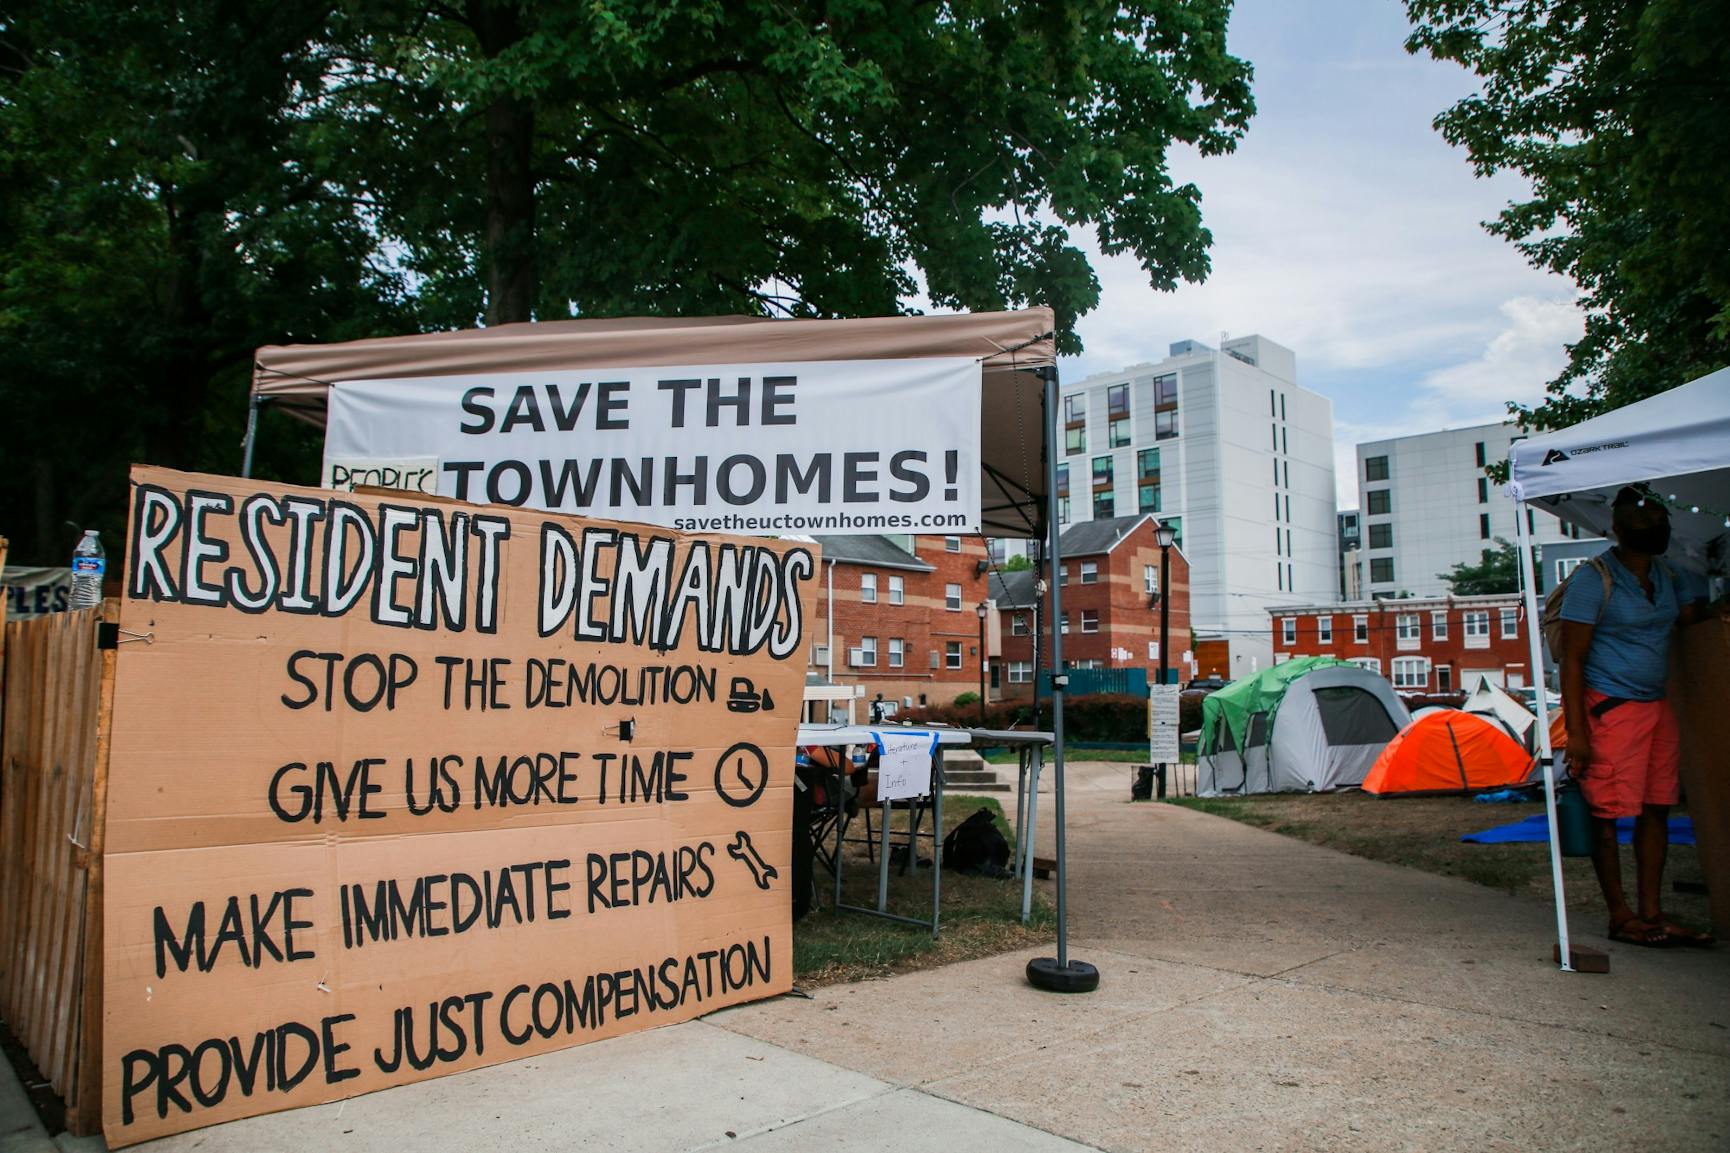 SAVE THE
PEOPLE'S
TOWNHOMES!
savetheuctownhomes.com
RESIDENT DEMANDS
STOP THE DEMOLITION
GIVE US MORE TIME
MAKE IMMEDIATE REPAIRS
PROVIDE JUST COMPENSATION
Literature
+
Info
OZARK TRAIL